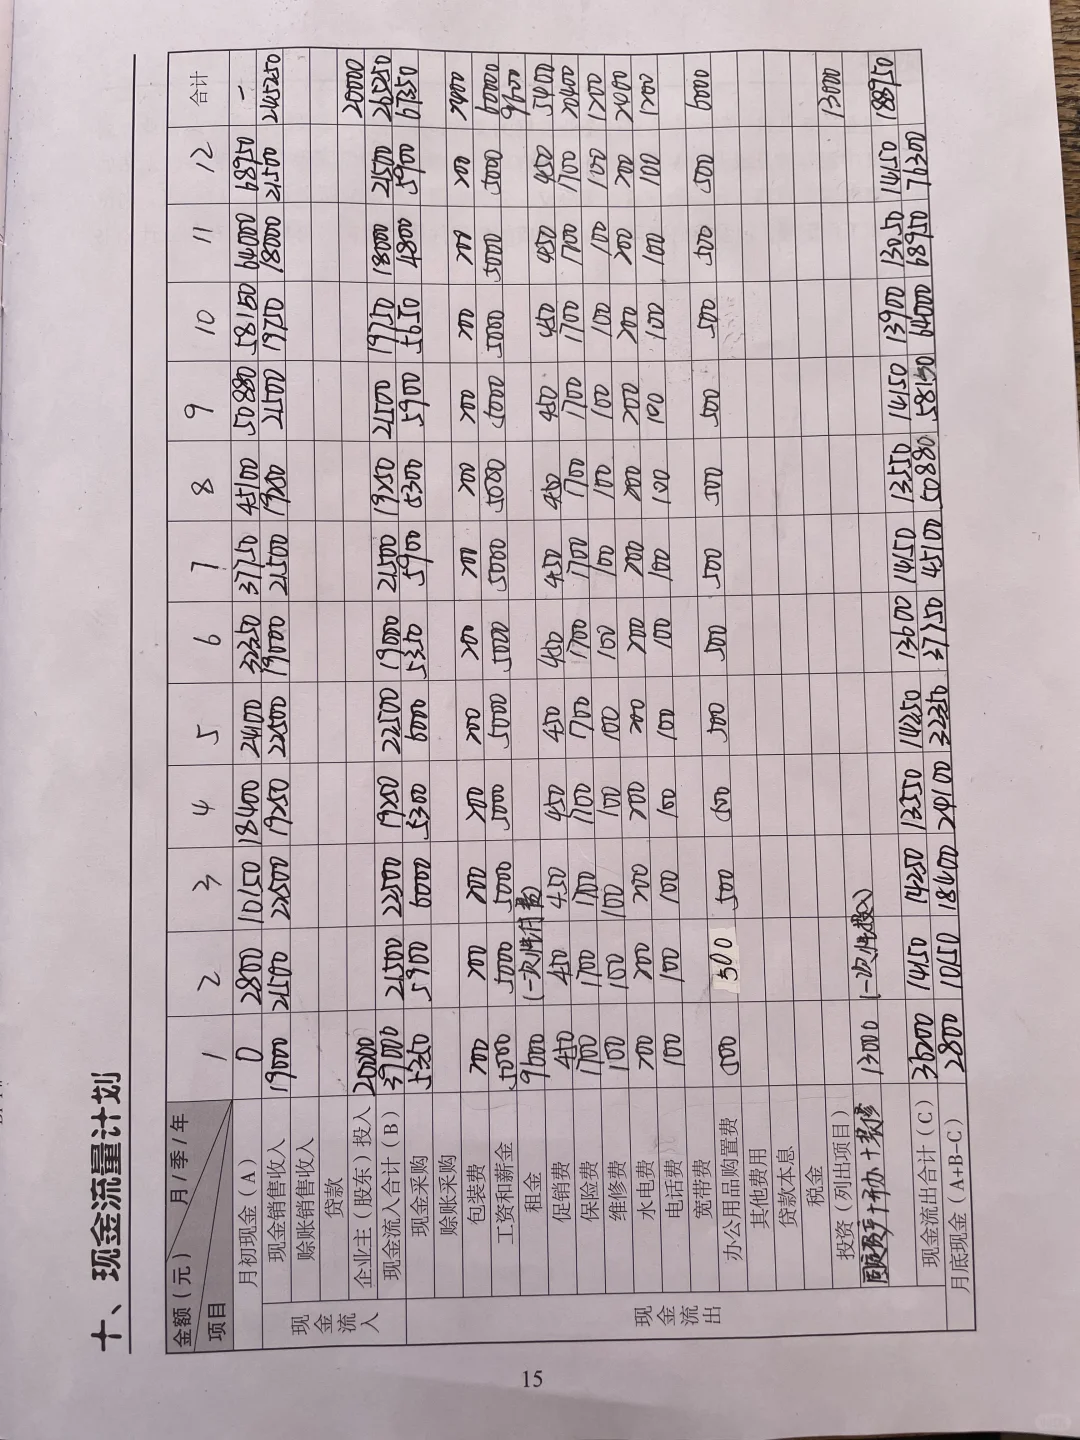 十、现金流量计划
金额（元） 月/季/年 项目 1 2 3 4 5 6 7 8 9 10 11 12 合计
月初现金（A） 0 2800 10150 18400 24100 32350 37750 45100 50880 58150 64000 68950 —
现金流入
现金销售收入 19000 21500 22500 19250 22500 19000 21500 19250 21500 19750 18000 21500 245250
赊账销售收入
贷款
企业主（股东）投入 20000 20000
现金流入合计（B） 39000 21500 22500 19250 22500 19000 21500 19250 21500 19750 18000 21500 265250
现金流出
现金采购 5350 5900 6000 5300 6000 5350 5900 5300 5900 5650 4800 5900 67350
赊账采购
包装费 200 200 200 200 200 200 200 200 200 200 200 200 2400
工资和薪金 5000 5000 5000 5000 5000 5000 5000 5000 5000 5000 5000 5000 60000
租金 9600 (一次性付费) 9600
促销费 450 450 450 450 450 450 450 450 450 450 450 450 5400
保险费 1700 1700 1700 1700 1700 1700 1700 1700 1700 1700 1700 1700 20400
维修费 100 100 100 100 100 100 100 100 100 100 100 100 1200
水电费 200 200 200 200 200 200 200 200 200 200 200 200 2400
电话费 100 100 100 100 100 100 100 100 100 100 100 100 1200
宽带费
办公用品购置费 500 500 500 500 500 500 500 500 500 500 500 500 6000
其他费用
贷款本息
税金
投资（列出项目） 13000
固定资产+开办+装修 13000 (一次性投入)
现金流出合计（C） 36200 14150 14250 13550 14250 13600 14150 13550 14150 13900 13050 14150 188950
月底现金（A+B-C） 2800 10150 18400 24100 32350 37750 45100 50880 58150 64000 68950 76300
15